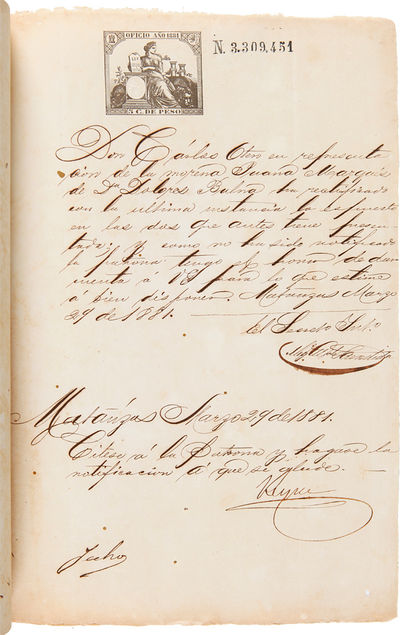 OFICIO AÑO 1881
5 C. DE PESO
N. 3.309,451
Don Cárlos Otero en representa
cion de la morena Juana Marqués
de Da. Dolores ha ratificado
con la ultima instancia lo espuesto
en las dos que antes tiene presen
tadas; y como no ha sido notificada
la patrona tengo el honor de dar
cuenta á VS para lo que estime
á bien disponer. Matánzas Marzo
29 de 1881.
el Secreto Into
Matánzas Marzo 29 de 1881.
Citese á la Patrona y hagase la
notificacion á que se alude.